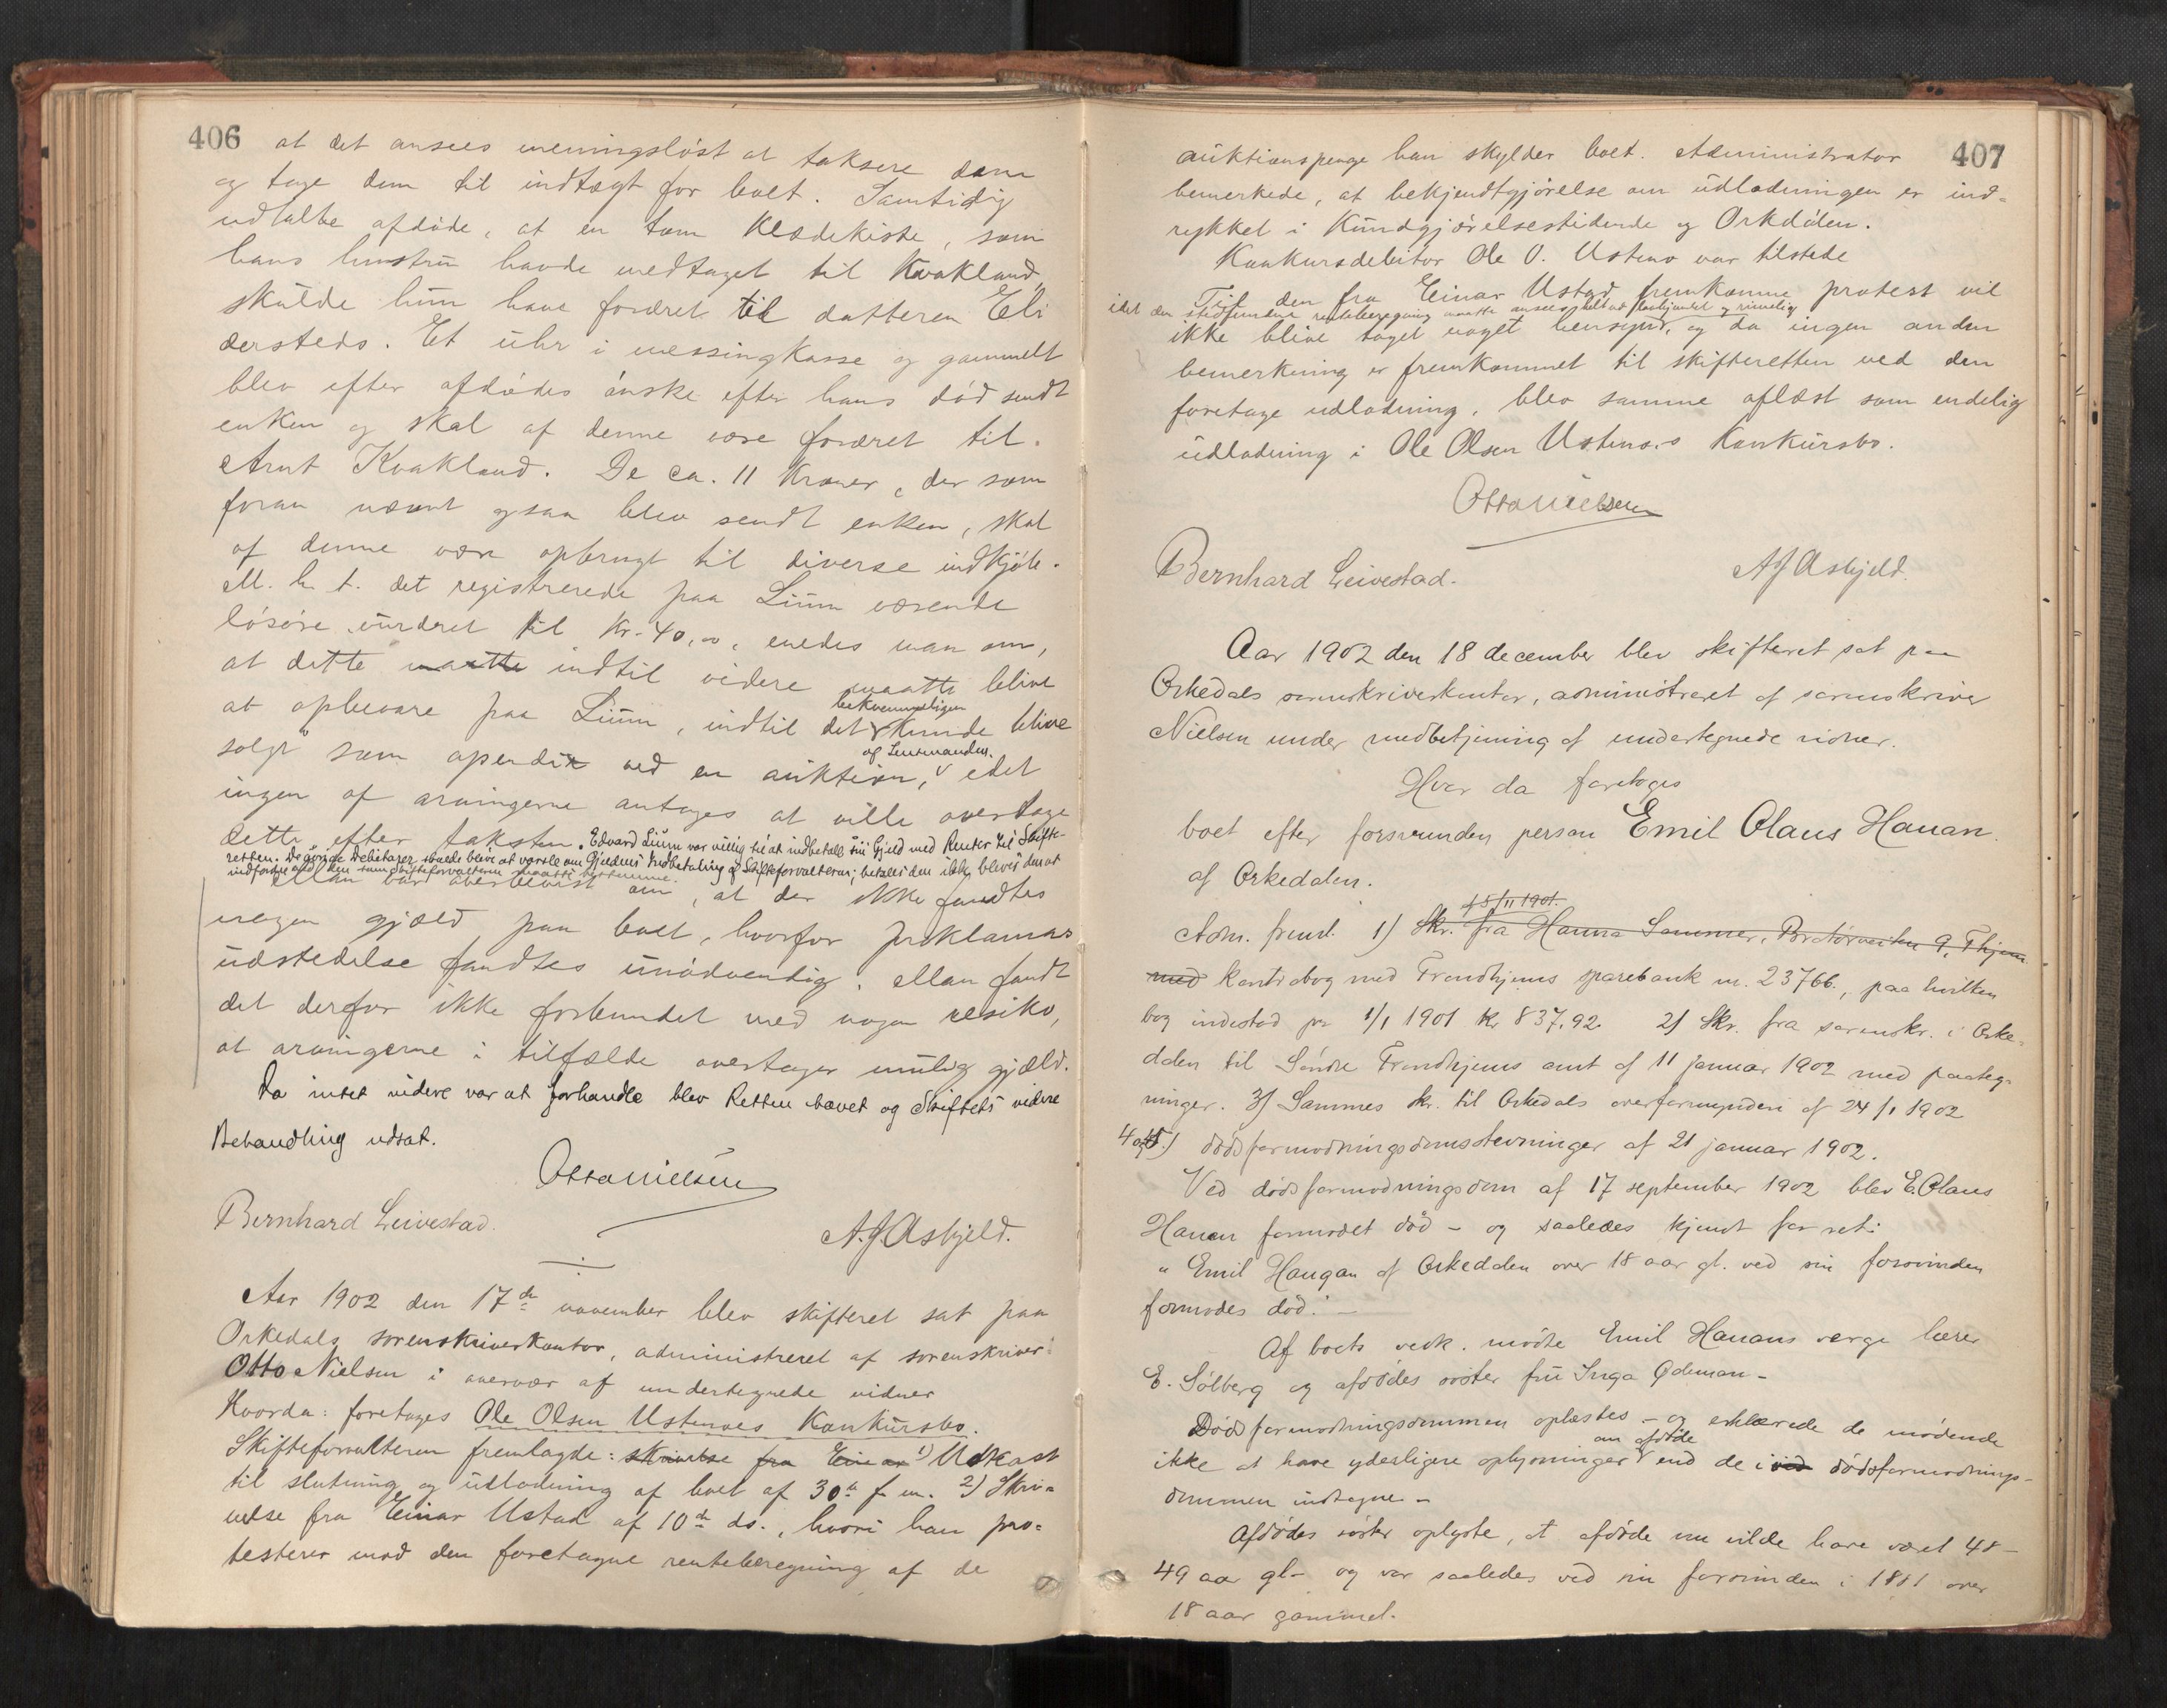 406
at det ansees meningsløst at taksere dem
og tage dem til indtægt for boet. Samtidig
udtalte afdøde, at en tom klædekiste, som
hans hustru havde medtaget til Kvakland,
skulde hun have foræret til datteren Eli
dersteds. Et uhr i messingkasse og gammelt
blev efter afdødes ønske efter hans død sendt
enken og skal af denne være foræret til
Arnt Kvakland. De ca. 11 Kroner, der som
foran nævnt ogsaa blev sendt enken, skal
af denne være opbrugt til diverse indkjøb.
M. h. t. det registrerede paa Liun værende
løsøre vurderet til Kr. 40,00, enedes man om,
at dette maatte indtil videre maatte blive
bekvemmeligen
at opbevare paa Liun, indtil det kunde blive
af Lensmanden.
solgt som apendix ved en auktion, idet
ingen af arvingerne antages at ville overtage
dette efter taksten. Edvard Liun var villig til at indbetale sin Gjeld med Renter til Skifte-
retten. De øvrige Debitorer skulde blive at varsle om Gjeldens Indbetaling af Skifteforvalteren; betales den ikke blever den at
indfordre ved den som Skifteforvalteren maatte bestemme.
Man var overbevist om, at der ikke fandtes
nogen gjæld paa boet, hvorfor proklamas
udstedelse fandtes unødvendig. Man fandt
det derfor ikke forbundet med nogen resiko,
at arvingerne i tilfælde overtager mulig gjæld.
Da intet videre var at forhandle blev Retten hævet og Skiftets videre
Behandling udsat.
Otto Nielsen
Bernhard Leivestad.
A. J. Asbjeld.
Aar 1902 den 17de november blev skifteret sat paa
Orkedals sorenskriverkontor, administreret af sorenskriver
Otto Nielsen i overvær af undertegnede vidner
Hvorda: foretages Ole Olsen Ustenoes Konkursbo.
Skifteforvalteren fremlagde: skrivelse fra Einar 1) Udkast
til slutning og udlodning af boet af 30te f. m. 2) Skri-
velse fra Einar Ustad af 10de ds., hvori han pro-
testerer mod den foretagne renteberegning af de
407
auktionspenge han skylder boet. Administrator
bemerkede, at bekjendtgjørelse om udlodningen er ind-
rykket i Kundgjørelsestidende og Orkdølen.
Konkursdebitor Ole O. Ustenø var tilstede
Til den fra Einar Ustad fremkomne protest vil
idet den stedfundne renteberegning maatte ansees helt ud forhjemlet og rimelig
ikke blive taget noget hensyn, og da ingen anden
bemerkning er fremkommet til skifteretten ved den
foretage udlodning, blev samme oplæst som endelig
udlodning i Ole Olsen Ustenø.s Konkursbo.
Otto Nielsen
Bernhard Leivestad.
A J Asbjeld.
Aar 1902 den 18 december blev skifteret sat paa
Orkedals sorenskriverkontor, administreret af sorenskriver
Nielsen under medbetjening af undertegnede vidner.
Hvor da foretoges
boet efter forsvunden person Emil Olaus Hauan
af Orkedalen.
15/11 1901.
Adm. freml. 1) Skr. fra Hanna Sommer, Bratørveiten 9, Thjem
med kontrabog med Trondhjems sparebank nr. 23766., paa hvilken
bog indestod pr 1/1 1901 kr 837.92. 2) Skr. fra sorenskr. i Orke-
dalen til Søndre Trondhjems amt af 11 januar 1902 med paateg-
ninger. 3) Sammes skr. til Orkedals overformynderi af 24/1 1902
4 og 5) dødsformodningsdomsstevninger af 21 januar 1902.
Ved dødsformodningsdom af 17 september 1902 blev E. Olaus
Hauan formodet død – og saaledes kjendt for ret:
" Emil Haugan af Orkedalen over 18 aar gl. ved sin forsvinden
formodes død." –
Af boets vedk. mødte Emil Hauans verge lærer
E. Sølberg og afdødes søster fru Inga Ødeman –
Dødsformodningsdommen oplæstes – og erklærede de mødende
om afdøde
ikke at have yderligere oplysninger end de i ved dødsformodnings-
dommen indtagne –
Afdødes søster oplyste, at afdøde nu vilde have været 48 –
49 aar gl – og var saaledes ved sin forsvinden i 1881 over
18 aar gammel.